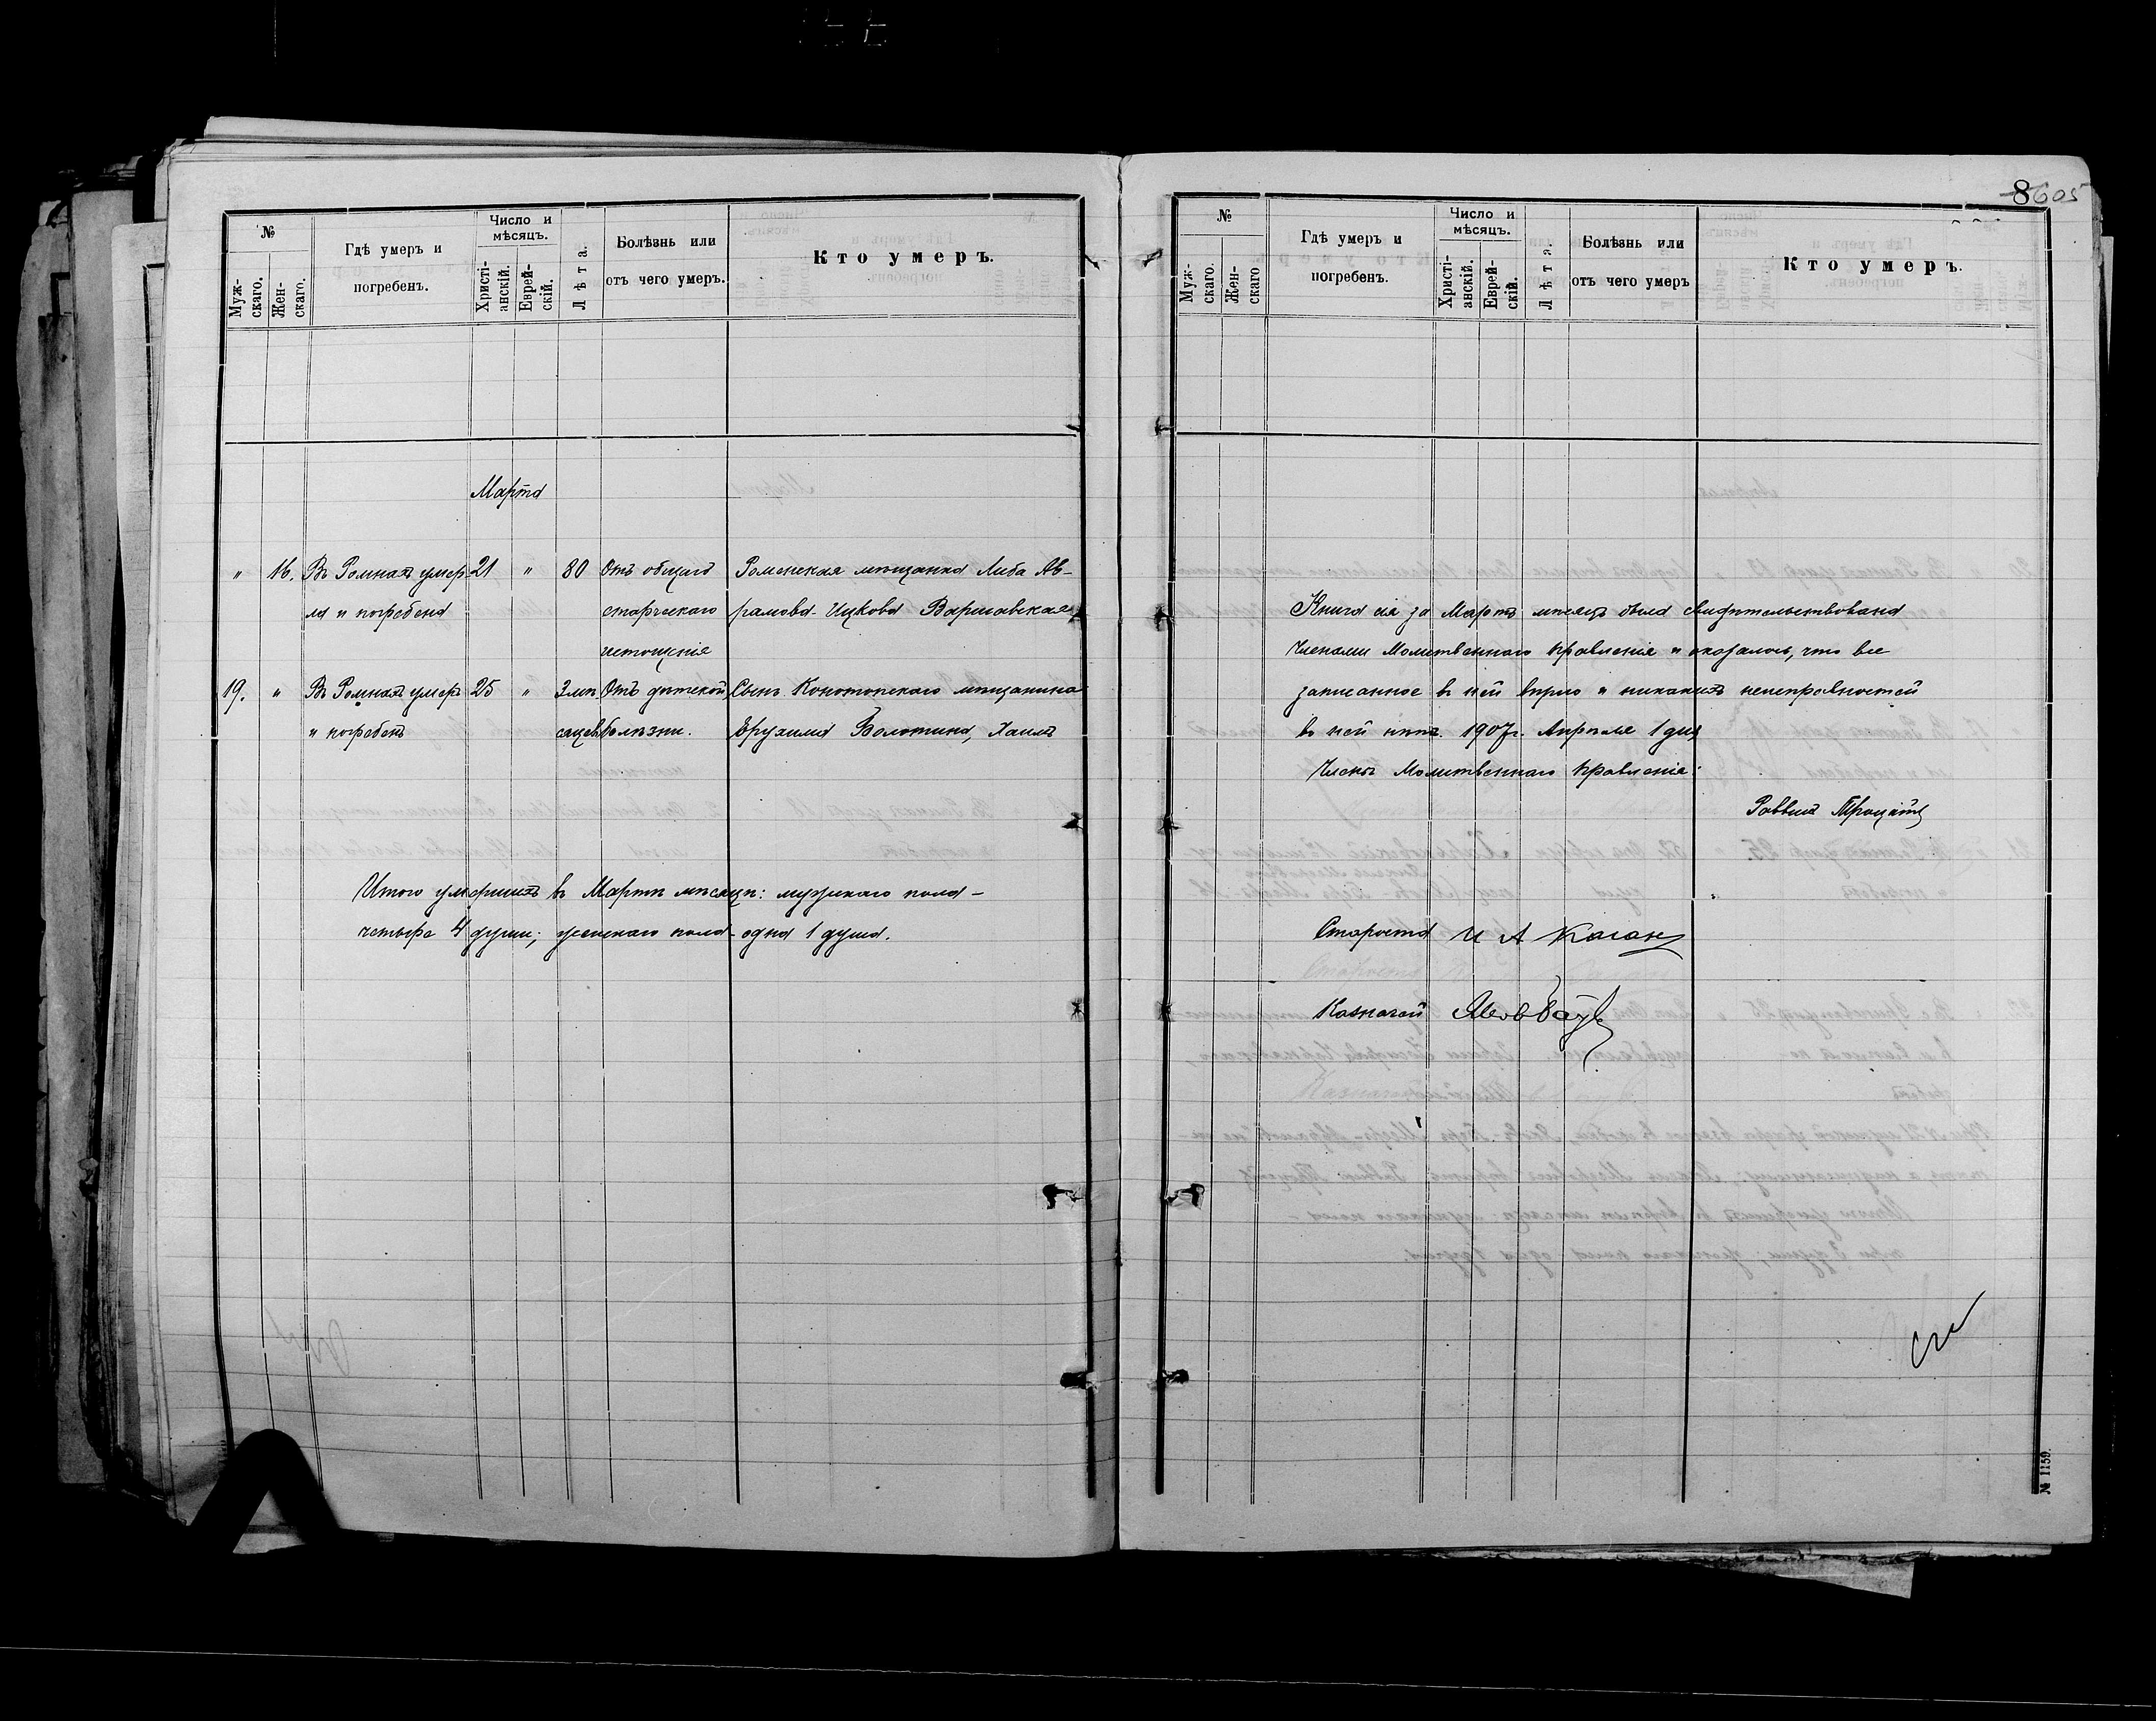 №
Муж-
скаго.
Жен-
скаго.
Гдѣ умеръ и
погребенъ.
Число и
мѣсяцъ.
Христі-
анскій.
Еврей-
скій.
Лѣта.
Болѣзнь или
отъ чего умеръ.
Кто умеръ.
Марта
" 16. Въ Ромнахъ умер- 21 " 80 Отъ общаго Роменская мѣщанка Либа Ав-
ла и погребена старческаго рамова-Ицкова Варшавская
истощенія
19. " Въ Ромнахъ умеръ 25 " 3 мѣ- Отъ дѣтской Сынъ Конотопскаго мѣщанина
и погребенъ сяцевъ болѣзни. Ерухима Золотина, Хаимъ
Итого умершихъ въ Мартѣ мѣсяцѣ: мужскаго пола –
четыре 4 души; женскаго пола – одна 1 душа.
8 605
№
Муж-
скаго.
Жен-
скаго
Гдѣ умеръ и
погребенъ.
Число и
мѣсяцъ.
Христі-
анскій.
Еврей-
скій.
Лѣта.
Болѣзнь или
отъ чего умеръ
Кто умеръ.
Книга сія за Мартъ мѣсяцъ была свидѣтельствована
Членами Молитвеннаго Правленія и оказалось, что все
записанное въ ней вѣрно и никакихъ неисправностей
въ ней нѣтъ. 1907 г. Апрѣля 1 дня
Члены Молитвеннаго Правленія:
Раввинъ
Староста И А Каганъ
Казначей
№ 1159.